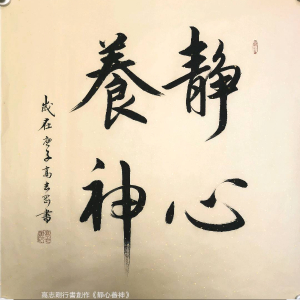 静心
養神
歲在庚子高志期書
高志期行書創作《靜心養神》